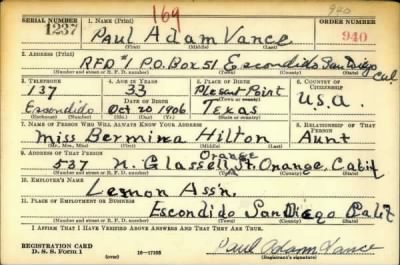 169 940
SERIAL NUMBER 1. NAME (Print) ORDER NUMBER
1237 Paul Adam Vance 940
(First) (Middle) (Last)
2. ADDRESS (Print)
RFD #1 P.O. Box 51 Escondido San Diego Cal
(Number and street or R. F. D. number) (Town) (County) (State)
3. TELEPHONE 4. AGE IN YEARS 5. PLACE OF BIRTH 6. COUNTRY OF CITIZENSHIP
137 33 Pleasant Point
DATE OF BIRTH (Town or county)
Escondido Oct 20 1906 Texas U.S.A.
(Exchange) (Number) (Mo.) (Day) (Yr.) (State or country)
7. NAME OF PERSON WHO WILL ALWAYS KNOW YOUR ADDRESS 8. RELATIONSHIP OF THAT PERSON
Miss Hilton Aunt
(Mr., Mrs., Miss) (First) (Middle) (Last)
9. ADDRESS OF THAT PERSON Orange
537 N. Glassell St. Orange, Calif
(Number and street or R. F. D. number) (Town) (County) (State)
10. EMPLOYER'S NAME
Lemon Ass'n.
11. PLACE OF EMPLOYMENT OR BUSINESS
Escondido San Diego Calif
(Number and street or R. F. D. number) (Town) (County) (State)
I AFFIRM THAT I HAVE VERIFIED ABOVE ANSWERS AND THAT THEY ARE TRUE.
REGISTRATION CARD
D. S. S. FORM 1 16-17105 Paul Adam Vance
(Registrant's signature)